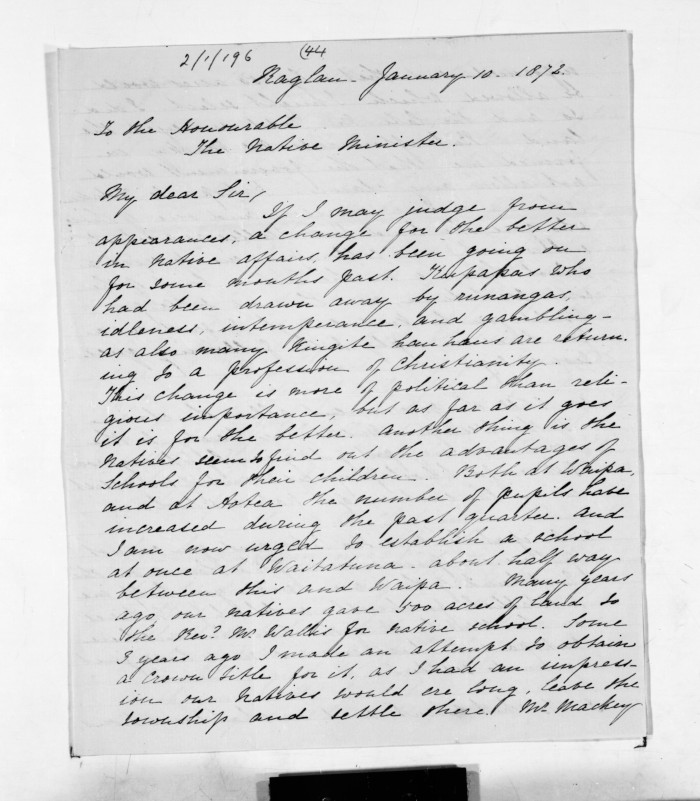 2/1/196 (44
Raglan. January 10. 1873.
To the Honourable
The Native Minister.
My dear Sir,
If I may judge from
appearances, a change for the better
in native affairs, has been going on
for some months past. Kupapas who
had been drawn away by runangas,
idleness, intemperance, and gambling -
as also many Kingite hauhaus are return-
ing to a profession of Christianity.
This change is more of political than reli-
gious importance, but as far as it goes
it is for the better. Another thing is the
Natives seem to find out the advantages of
Schools for their children. Both at Waipa,
and at Aotea the number of pupils have
increased during the past quarter. And
I am now urged to establish a school
at once at Waitatuna. about half way
between this and Waipa. Many years
ago, our natives gave 500 acres of land to
the Revd. Mr. Wallis for native school. Some
3 years ago I made an attempt to obtain
a Crown title for it, as I had an impress-
ion our Natives would ere long, leave the
township and settle there. Mr. Mackey